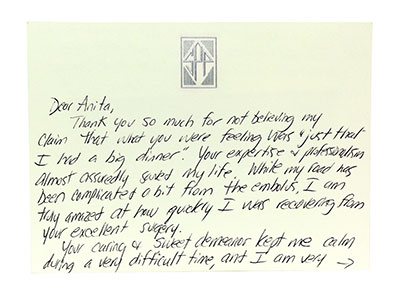 Dear Anita,
Thank you so much for not believing my
claim that what you were feeling was "just that
I had a big dinner". Your expertise & professionalism
almost assuredly saved my life. While my road has
been complicated a bit from the embolus, I am
truly amazed at how quickly I was recovering from
your excellent surgery.
Your caring & sweet demeanor kept me calm
during a very difficult time, and I am very →